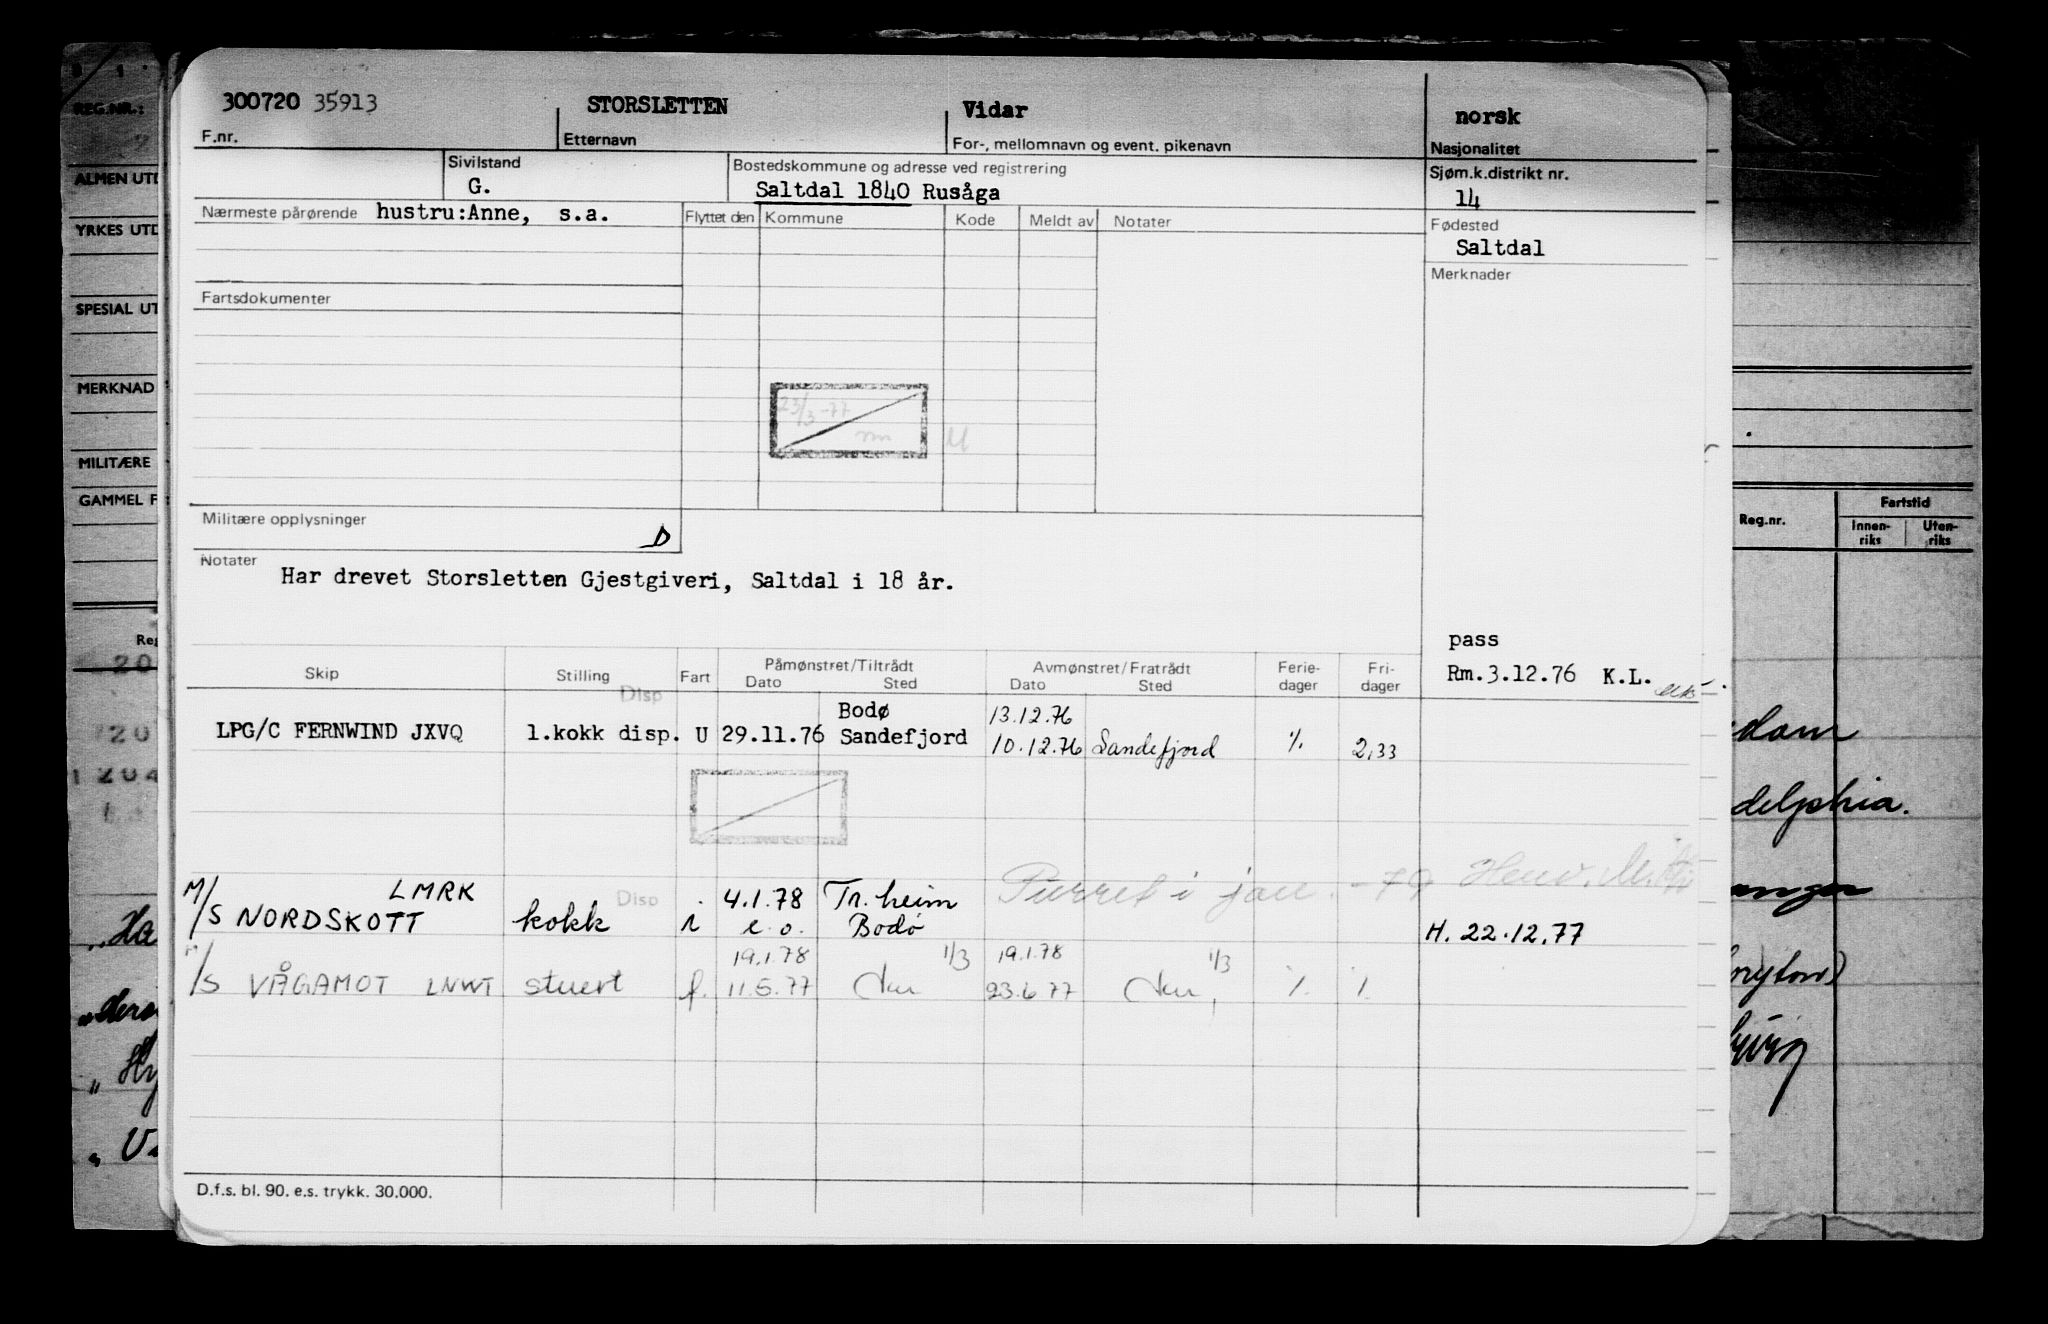 300720 35913 STORSLETTEN Vidar norsk
F.nr. Etternavn For-, mellomnavn og event. pikenavn Nasjonalitet
Sivilstand Bostedskommune og adresse ved registrering Sjøm.k.distrikt nr.
G. Saltdal 1840 Rusåga 14
Nærmeste pårørende hustru:Anne, s.a. Flyttet den Kommune Kode Meldt av Notater Fødested
Saltdal
Merknader
Fartsdokumenter
23/3 -77
Militære opplysninger D
Notater
Har drevet Storsletten Gjestgiveri, Saltdal i 18 år.
pass
Rm.3.12.76 K.L.
Skip Stilling Fart Påmønstret/Tiltrådt Avmønstret/Fratrådt Ferie- Fri-
Dato Sted Dato Sted dager dager
Disp
Bodø 13.12.76
LPG/C FERNWIND JXVQ 1.kokk disp. U 29.11.76 Sandefjord 10.12.76 Sandefjord % 2,33
M/S NORDSKOTT LMRK kokk Disp i 4.1.78 Tr.heim Purret i jan. -79
e.o. Bodø H. 22.12.77
19.1.78 1/3 19.1.78 1/3
M/S VÅGAMOT LNWT stuert f. 11.5.77 23.6 77 % %
D.f.s. bl. 90. e.s. trykk. 30.000.
REG.NR.:
ALMEN UTD
YRKES UTD
SPESIAL UT
MERKNAD
MILITÆRE
GAMMEL F
Reg
20
20
1 204
Fartstid
Reg.nr. Innen-riks Uten-riks
dam
delphia.
anger